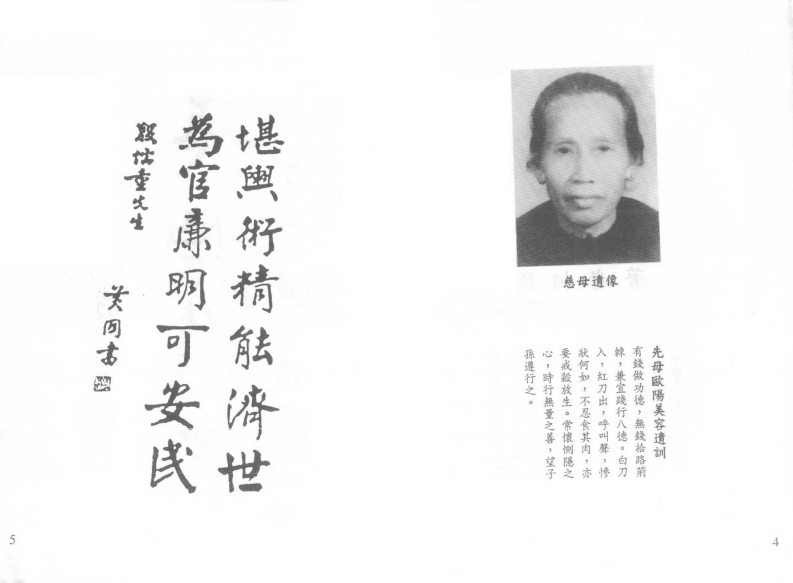 慈母遺像
先母歐陽美容遺訓
有錢做功德，無錢拾路荊
棘，兼宜踐行八德。白刀
入，紅刀出，呼叫聲，慘
狀何如，不忍食其肉，亦
要戒殺放生。常懷惻隱之
心，時行無量之善，望子
孫遵行之。
4
堪輿術精能濟世
為官廉明可安民
儒重先生
書
5